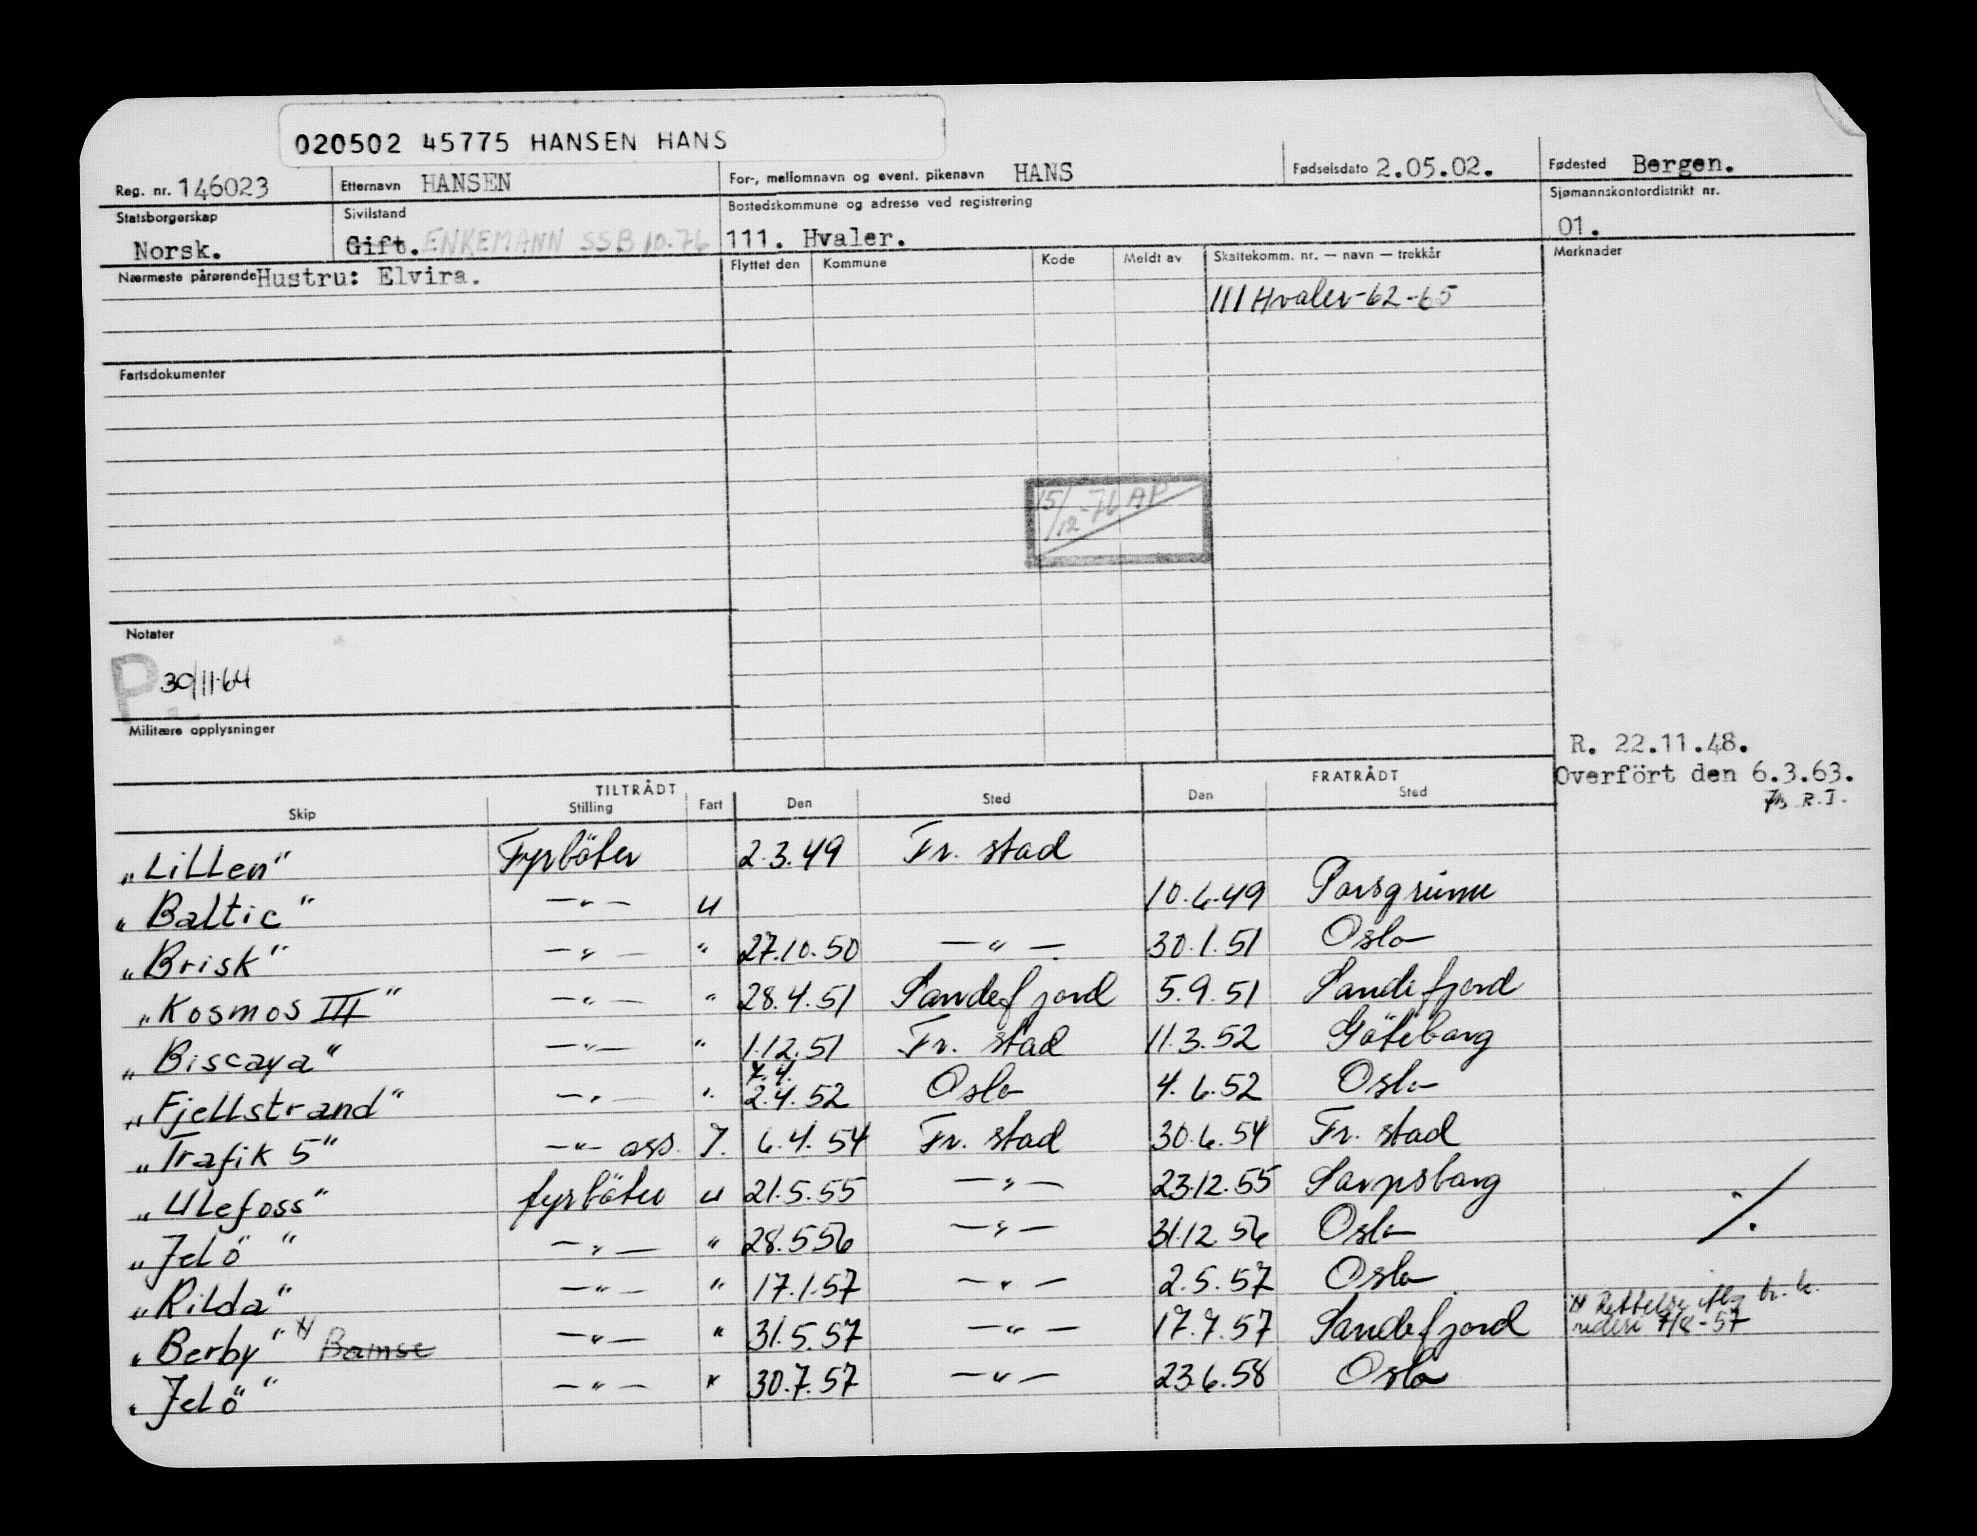 020502 45775 HANSEN HANS
Reg. nr. 146023 Etternavn HANSEN For-, mellomnavn og event. pikenavn HANS Fødselsdato 2.05.02. Fødested Bergen.
Statsborgerskap Sivilstand Bostedskommune og adresse ved registrering Sjømannskontordistrikt nr.
Norsk. Gift. ENKEMANN SSB 10.76 111. Hvaler. 01.
Nærmeste pårørende Hustru: Elvira. Flyttet den Kommune Kode Meldt av Skattekomm. nr. — navn — trekkår Merknader
111 Hvaler-62-65
Fartsdokumenter
15/12-76 AP
Notater
P 30/11-64
Militære opplysninger
R. 22.11.48.
Overfört den 6.3.63.
R.I.
TILTRÅDT FRATRÅDT
Skip Stilling Fart Den Sted Den Sted
"Lillen" Fyrböter 2.3.49 Fr. stad
"Baltic" —"— u 10.6.49 Porsgrunn
"Brisk" —"— " 27.10.50 —"— 30.1.51 Oslo
"Kosmos III" —"— " 28.4.51 Sandefjord 5.9.51 Sandefjord
"Biscaya" —"— " 1.12.51 Fr. stad 11.3.52 Göteborg
7.4.
"Fjellstrand" —"— " 2.4.52 Oslo 4.6.52 Oslo
"Trafik 5" —"— ass. 7. 6.4.54 Fr. stad 30.6.54 Fr. stad
"Ulefoss" fyrböter u 21.5.55 —"— 23.12.55 Sarpsborg
"Jelö" —"— " 28.5.56 —"— 31.12.56 Oslo
"Rilda" —"— " 17.1.57 —"— 2.5.57 Oslo
"Berby" x) Bamse —"— " 31.5.57 —"— 17.7.57 Sandefjord x) Rettelse iflg br. fr.
rederi 7/8-57
"Jelö" —"— " 30.7.57 —"— 23.6.58 Oslo